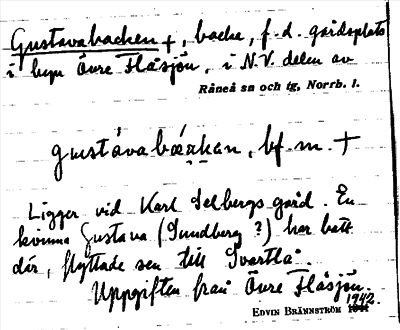 Gustavabacken +, backe, f.d. gårdsplats
i byn Övre Flåsjön, i N.V. delen av
Råneå sn och tg, Norrb. l.
gustávabăckan, bf. m. +
Ligger vid Karl Selbergs gård. En
kvinna Gustava (Sundberg ?) har bott
där, flyttade sen till Svartlå.
Uppgiften från Övre Flåsjön.
EDVIN BRÄNNSTRÖM 1942.